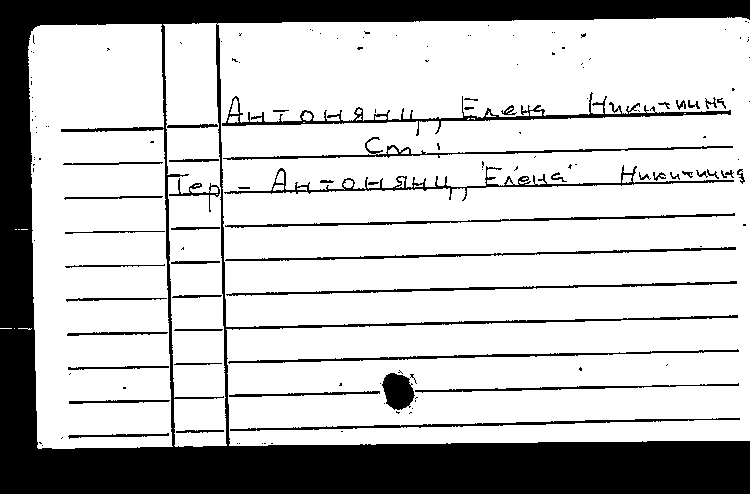 Антонянц, Елена Никитична
см.:
Тер-Антонянц, Елена Никитична